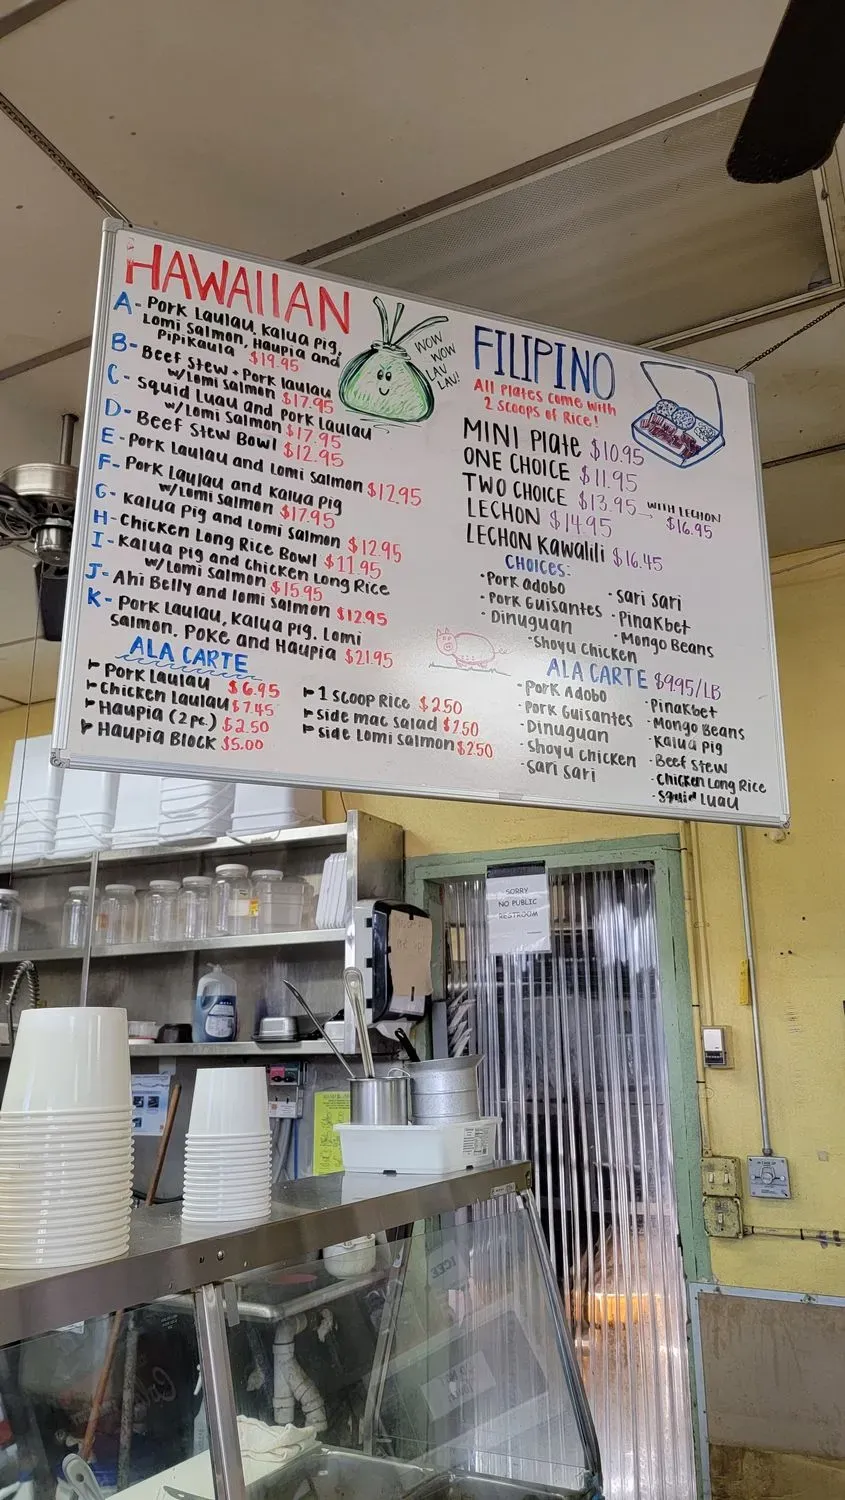 HAWAIIAN
A- Pork Laulau, Kalua Pig,
Lomi Salmon, Haupia and
Pipikaula $19.95
B- Beef Stew + Pork laulau
w/Lomi salmon $17.95
C- Squid Luau and Pork Laulau
w/Lomi Salmon $17.95
D- Beef Stew Bowl $12.95
E- Pork Laulau and Lomi Salmon $12.95
F- Pork Laulau and Kalua Pig
w/Lomi Salmon $17.95
G- Kalua Pig and Lomi Salmon $12.95
H- Chicken Long Rice Bowl $11.95
I- Kalua Pig and Chicken Long Rice
w/Lomi Salmon $15.95
J- Ahi Belly and Lomi Salmon $12.95
K- Pork Laulau, Kalua Pig, Lomi
Salmon, Poke and Haupia $21.95
WOW
WOW
LAU
LAU!
ALA CARTE
Pork Laulau $6.95
Chicken Laulau $7.45
Haupia (2 pc.) $2.50
Haupia Block $5.00
1 Scoop Rice $2.50
Side mac Salad $2.50
Side Lomi Salmon $2.50
FILIPINO
All Plates come with
2 scoops of Rice!
MINI Plate $10.95
ONE CHOICE $11.95
TWO CHOICE $13.95 → WITH LECHON
$16.95
LECHON $14.95
LECHON Kawalili $16.45
CHOICES:
• Pork adobo
• Pork Guisantes
• Dinuguan
• Shoyu Chicken
• Sari Sari
• Pinakbet
• Mongo Beans
ALA CARTE $9.95/LB
• Pork Adobo
• Pork Guisantes
• Dinuguan
• Shoyu Chicken
• Sari Sari
• Pinakbet
• Mongo Beans
• Kalua Pig
• Beef Stew
• Chicken Long Rice
• Squid Luau
SORRY
NO PUBLIC
RESTROOM